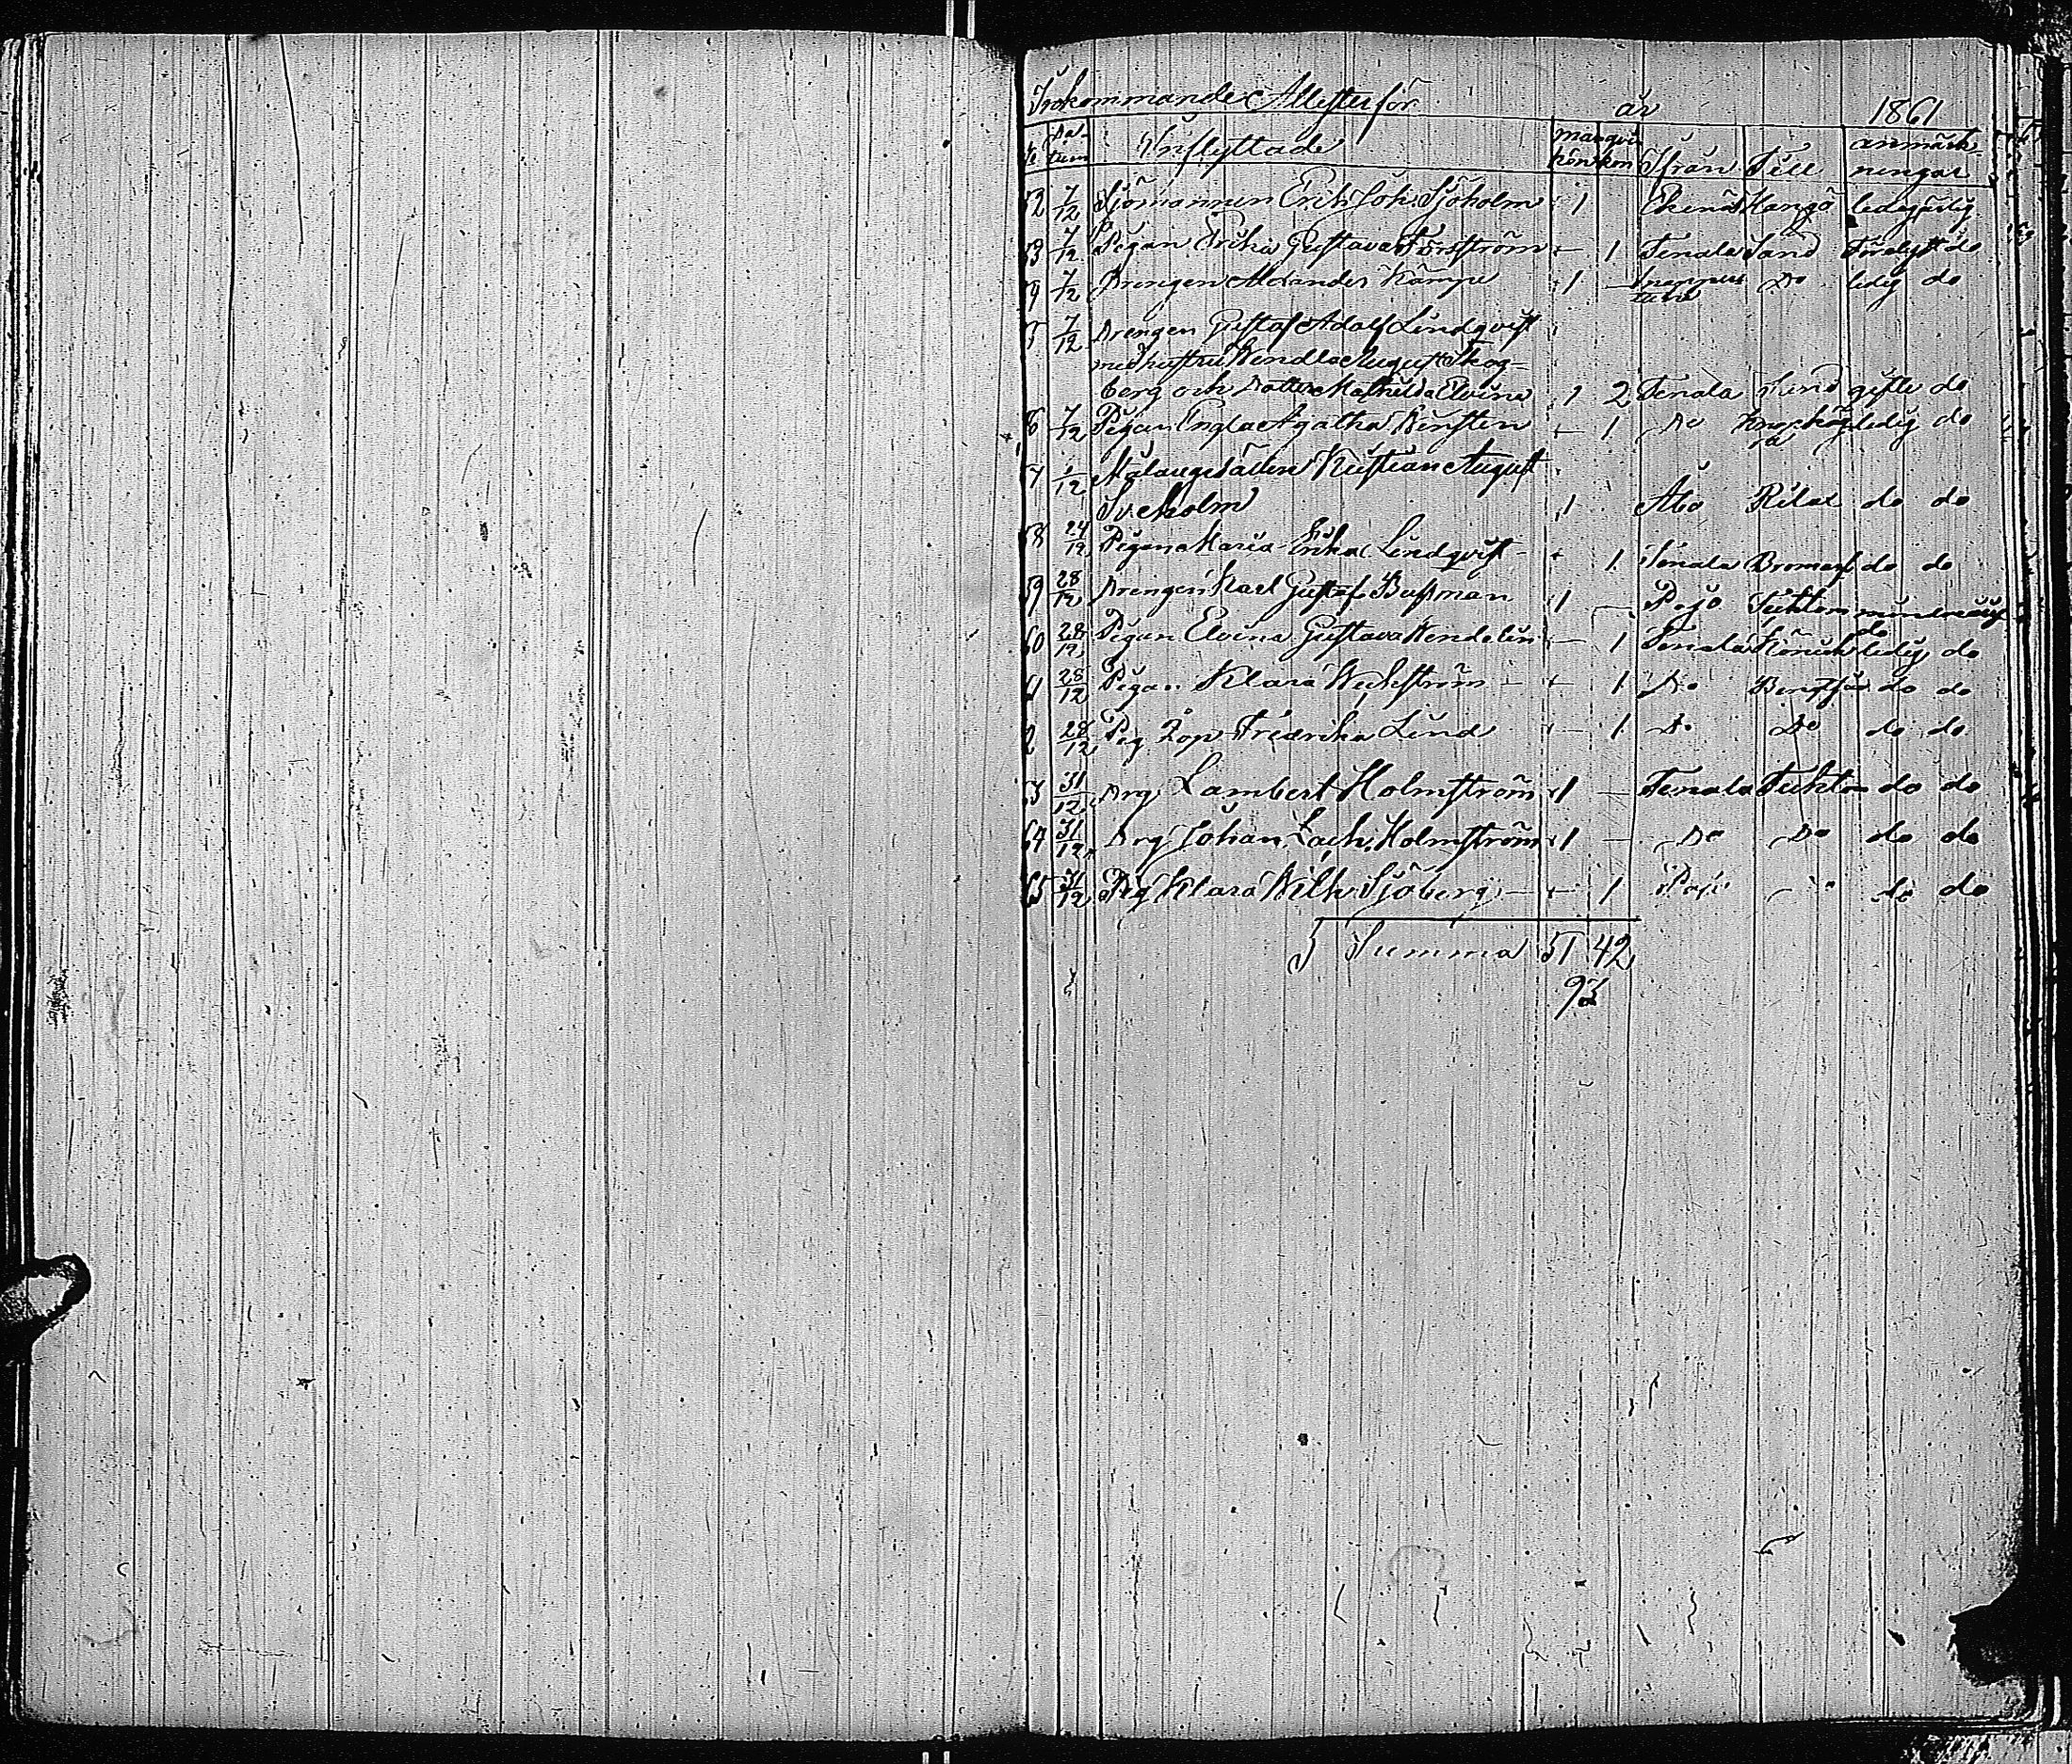 Inkommande Attester för år 1861
No Da-tum Inflyttade mankön qvinkön Ifrån Till anmärk-ningar
52 7/12 Sjömannen Erik Joh. Sjöholm 1 Ekenäs Hangö ledig ärlig
53 7/12 Pigan Erika Gustava Forsström — 1 Tenala Sand do
54 7/12 Drengen Alexander Kämpe 1 — Do ledig do
55 7/12 Drengen Gustaf Adolf Lindqvist
med hustru Wendla August Skog-
berg och Dotter Mathilda Elvina 1 2 Tenala Lund gifte do
56 7/12 Pigan Engla Agatha — 1 Do ledig do
57 /12 Kristian August
1 Åbo Rilax do do
58 24/12 Pigan Maria Erika Lindqvist — 1 Tenala Bromarf do do
59 28/12 Drengen Karl Gustaf Bussman 1 — Pojo
do
60 28/12 Pigan Elvina Gustava Wendelin — 1 Tenala ledig do
61 28/12 Pigan Klara Weckström — 1 Do do do
62 28/12 Pig Lop Fredrika Lind — 1 Do Do do do
63 31/12 Drg Lambert Holmström 1 — Tenala Tecktom do do
64 31/12 Drg Johan Zach. Holmström 1 — Do Do do do
65 31/12 Pig Klara Wilh. Sjöberg — 1 Pojo do do
Summa 51 42
93